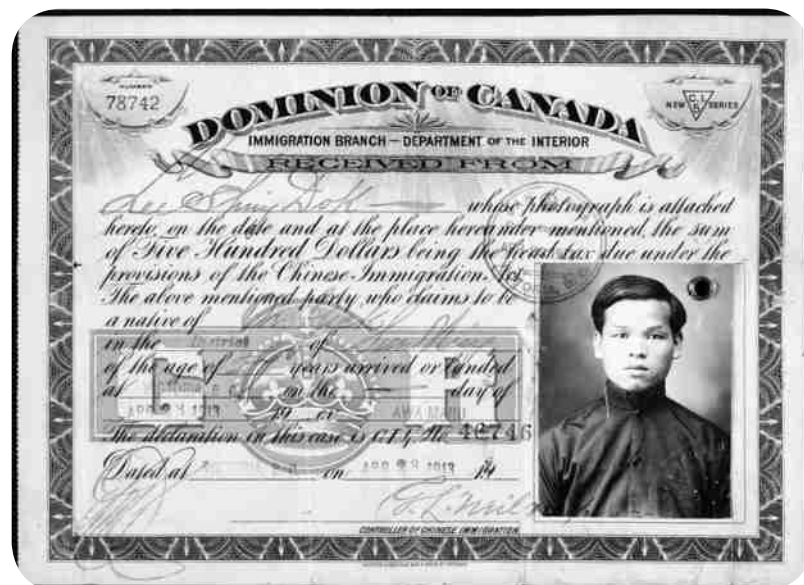 NUMBER
78742
DOMINION OF CANADA
NEW C.I.R. SERIES
IMMIGRATION BRANCH — DEPARTMENT OF THE INTERIOR
RECEIVED FROM
Lee whose photograph is attached
hereto, on the date and at the place hereunder mentioned, the sum
of Five Hundred Dollars being the head tax due under the
provisions of the Chinese Immigration Act
The above mentioned party, who claims to be
a native of
in the District of
of the age of years arrived or landed
at on the day of
APR 1913 19 AWA MARU
The declaration in this case is C.I.4, No. 46746
Dated at on APR 1913 19
CONTROLLER OF CHINESE IMMIGRATION